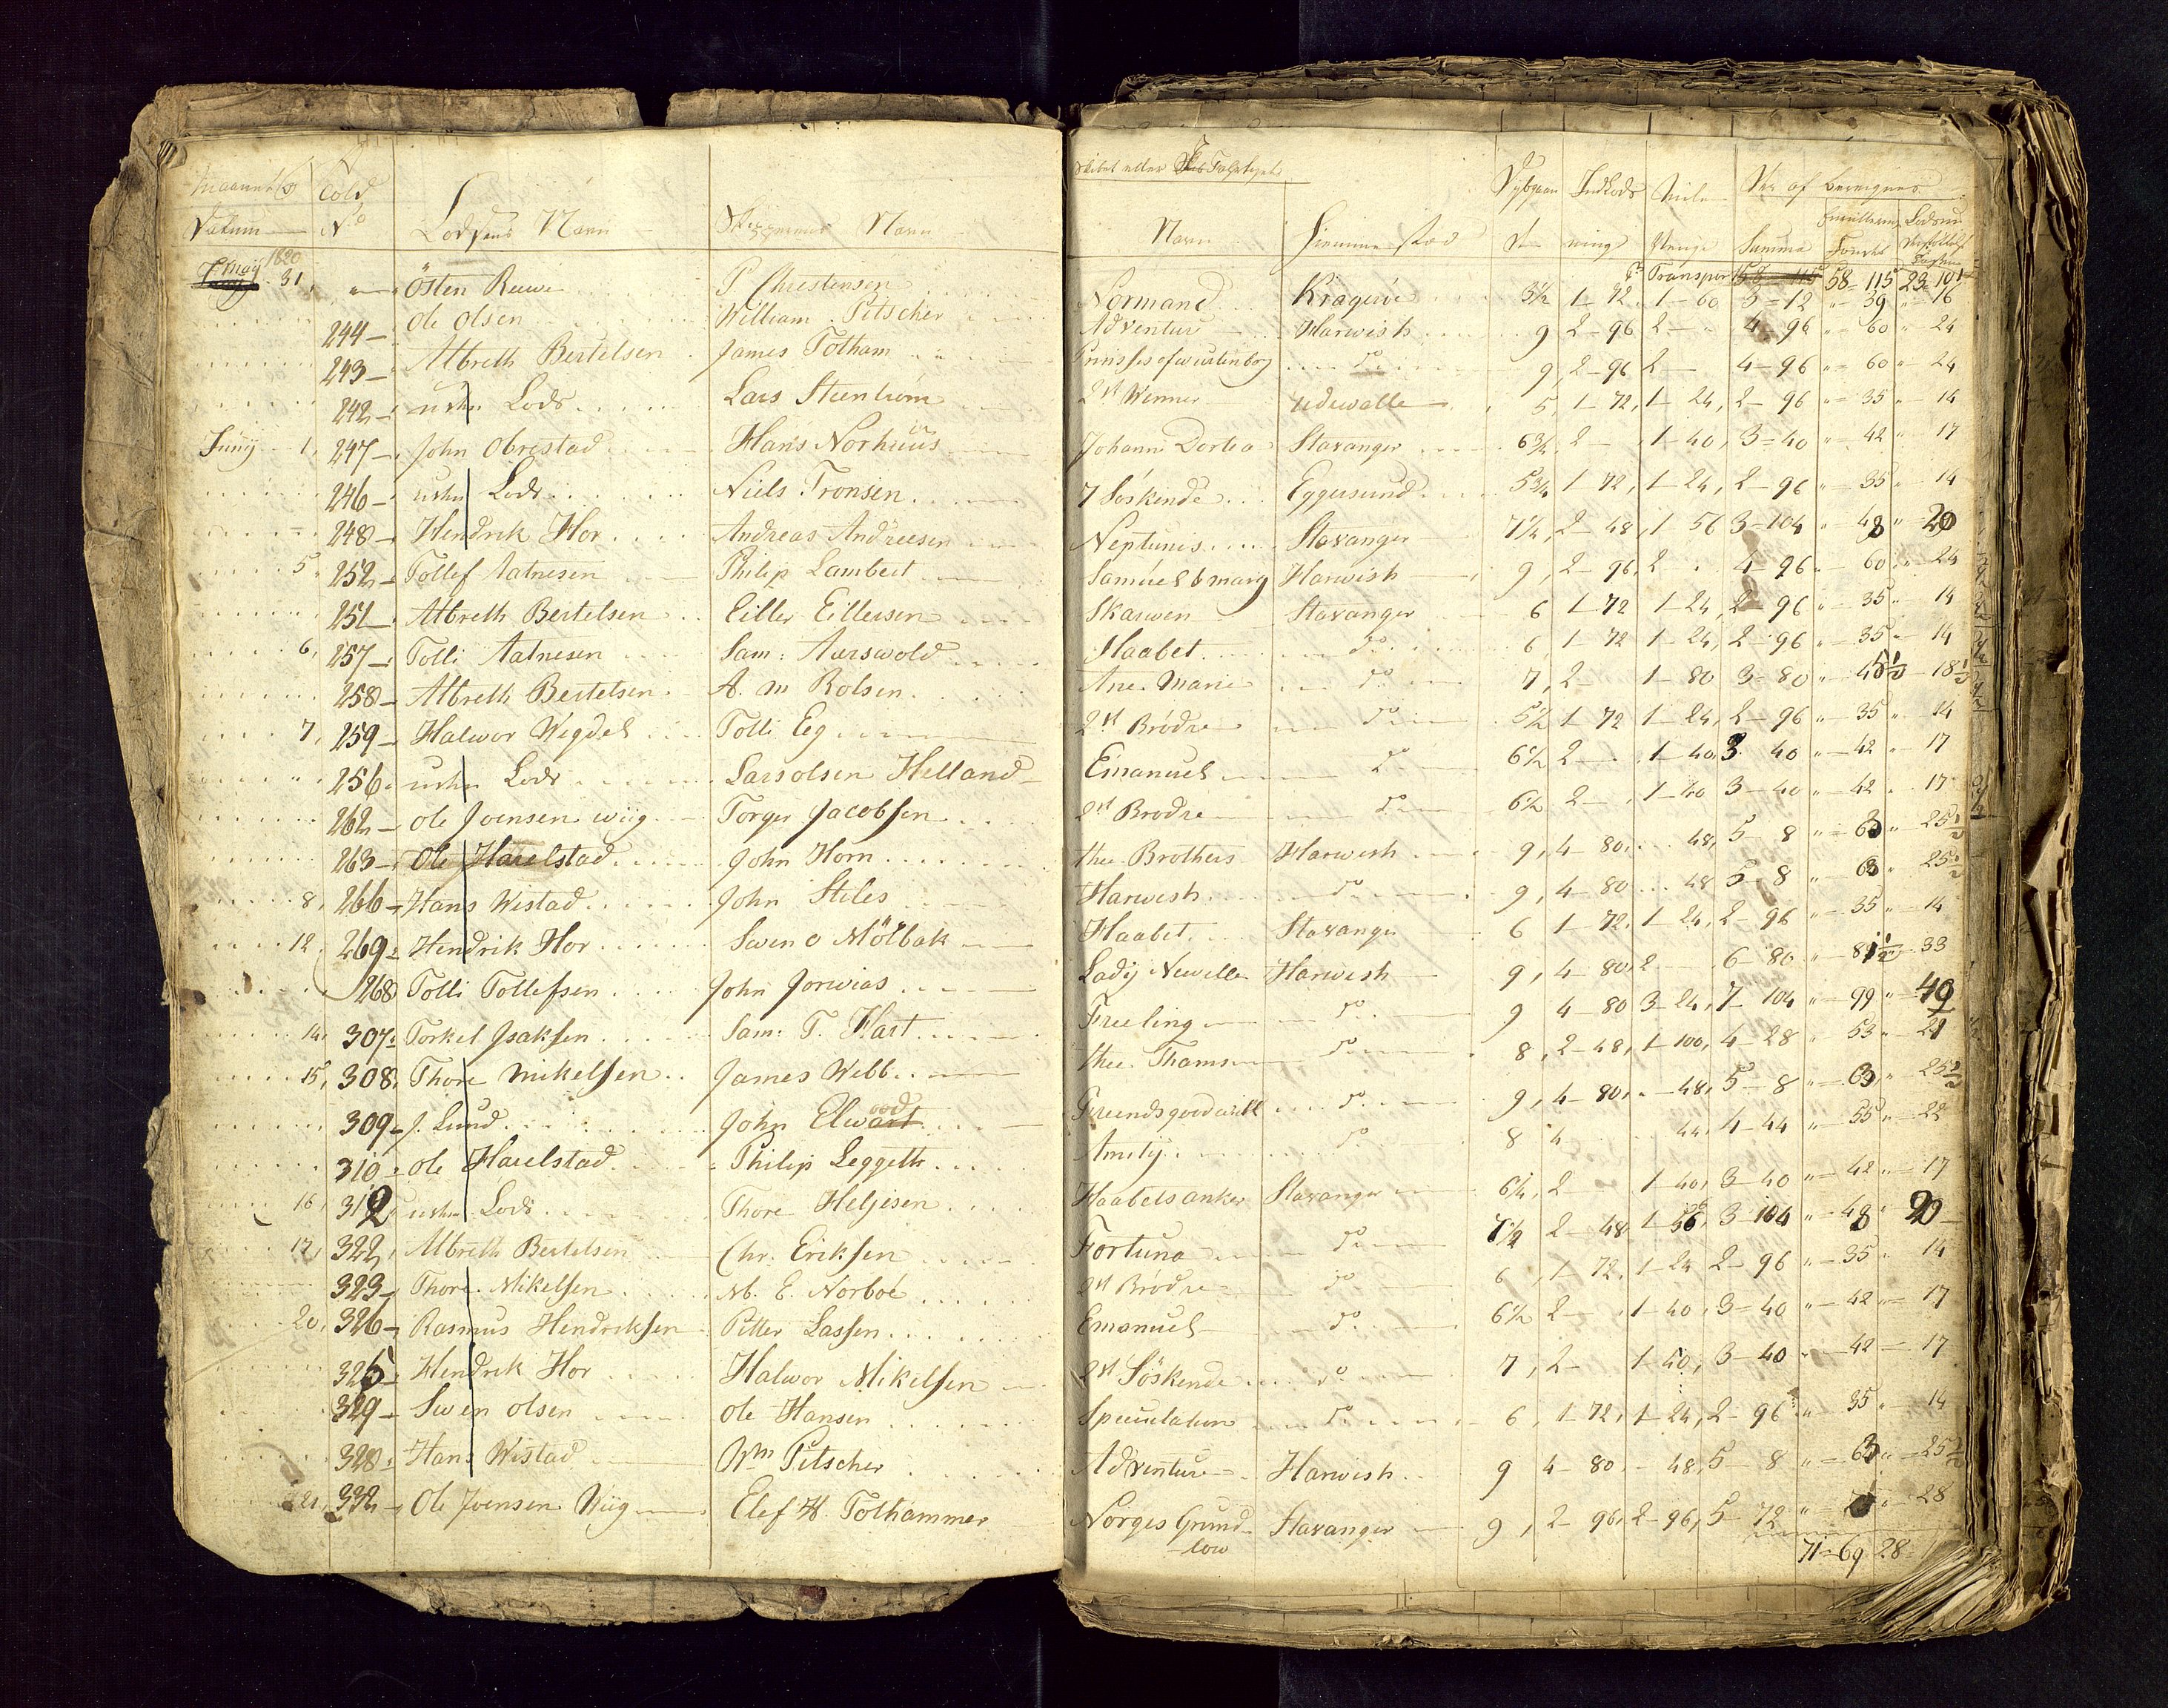 Maanet & Told Skibet eller Fartøyets Dybgaaen Indlods Mile Der af beregnes
Datum No Lodsens Navn Skipperens Navn Navn Hjemme stæd de ninge Penge Summa Fonden
1820 Transport 58-115 58-115 23-101
May 31, " Østen Reewe P Chrestensen Normand Kragerøe 5½ 1-72 1-60 3-12 "-39 "-16
244 Ole Olsen William Pitscher Adventure Harwish 9 2-96 2- 4-96 "-60 "-24
243 Albreth Bertelsen James Totham Prinsses of wurtenborg do 9, 2-96 2- 4-96 "-60 "-24
242 uden Lods Lars Steenstrøm 2de Wenner Udewalle 5, 1-72, 1-24, 2-96 "-35 "-14
Juny 1, 247 John Obrestad Hans Norhuus Johanne Dortea Stavanger 6¾ 2- 1-40, 3-40 "-42 "-17
246 uden Lods Niels Tronsen 7 Søskende Eggersund 5¾ 1-72, 1-24, 2-96 "-35 "-14
248 Hendrik Hor Andreas Andreesen Neptunis Stavanger 7¼, 2-48, 1-56 3-104 "-48 "-20
5, 252 Tollef Aatnesen Philip Lambert Samuel & mary Harwish 9, 2-96, 2 4-96 "-60 "-24
251 Albreth Bertelsen Eiller Eillersen Skarwen Stavanger 6 1-72 1-24, 2-96 "-35 "-14
6, 257 Tolli Aatnesen Sam: Aarswold Haabet do 6, 1-72 1-24, 2-96 "-35 "-14
258 Albreth Bertelsen A. M Rolsen Ane Marie do 7, 2- 1-80 3-80 "-45½ 18½
7, 259 Halwor Wigdel Tolli Eeg 2de Brødre do 5½ 1-72 1-24, 2-96 "-35 "-14
256 uden Lods Lars olsen Helland Emanuel do 6½ 2- 1-40, 3-40 "-42 "-17
262 Ole Joensen wiig Torger Jacobsen 2de Brødre do 6½ 2- 1-40 3-40 "-42 "-17
263 Ole Harelstad John Horn thee Brothers Harwish 9, 4-80, 48, 5-8 "-63 "-25½
8, 266 Hans Wistad John Stiles Harwish do 9, 4-80 48 5-8 "-63 25½
12, 269 Hendrik Hor Swen O Mölbak Haabet Stavanger 6 1-72, 1-24, 2-96 "-35 "-14
268 Tolli Tollefsen John Jorwias Lady Newille Harwish 9, 4-80, 2 6-80 "-81½ "-33
14, 307 Torkel Jsaksen Sam: T. Hart Freeling do 9 4-80 3-24, 7-104 "-99 "-40
15, 308, Thore Mikelsen James Webb thee Thams do 8, 2-48, 1-100, 4-28 "-53 "-21
309 J. Lund John Elwood Freends goodwill do 9, 4-80, 48, 5-8 "-63, "-25½
310 Ole Harelstad Philip Leggett Amity do 8 4 44, 4-44 "-55 "-22
16, 312 uden Lods Thore Heljesen Haabets anker Stavanger 6¼, 2 1-40, 3-40 "-42 "-17
17, 322, Albreth Bertelsen Chr. Eriksen Fortuna do 7½ 2-48 1-56, 3-104 "-48 "-20
323 Thore Mikelsen Nb. E. Norboe 2de Brødre do 6, 1-72, 1-24 2-96 "-35 "-14
20, 326 Rasmus Hendriksen Pitter Lassen Emanuel do 6½ 2- 1-40, 3-40 "-42 "-17
325 Hendrik Hor Halwor Mikelsen 2de Söskende do 7, 2- 1-40, 3-40 "-42 "-17
329 Swen olsen Ole Hansen Speculation do 6, 1-72, 1-24, 2-96 "-35 "-14
328 Hans Wistad Wm Pitscher Adventure Harwish 9 4-80, 48, 5-8 "-63 "-25½
21, 332 Ole Joensen Wiig Elef H. Tolhammer Norges Grund-low Stavanger 9, 2-96, 2-96, 5-72 "-28
71-69 28